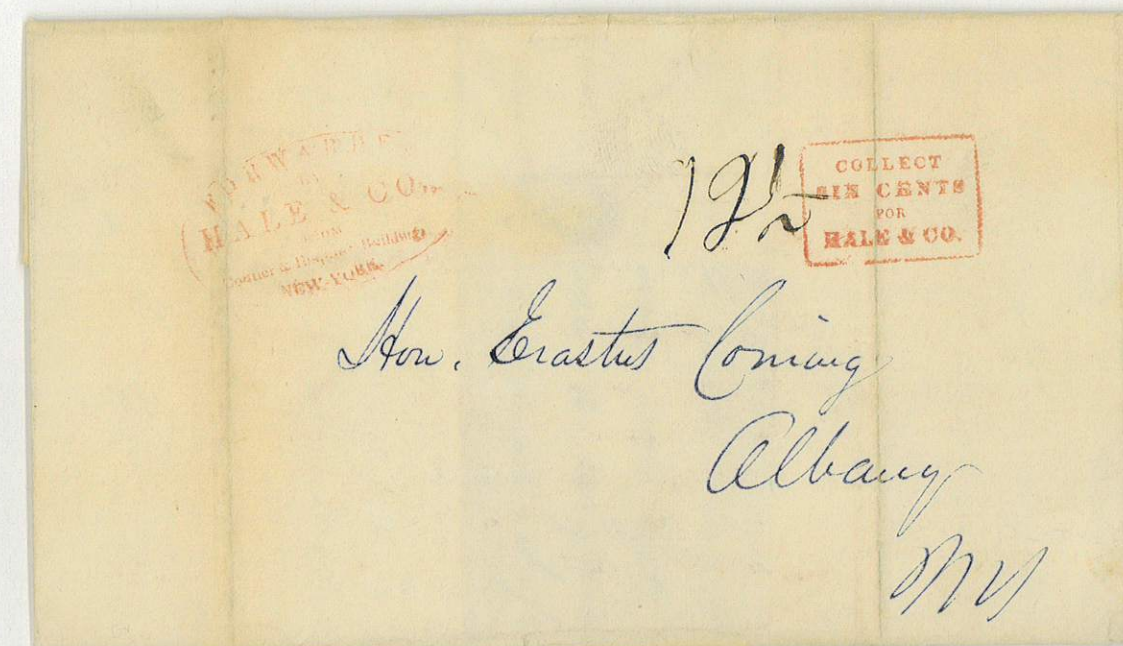 FORWARDED
BY
HALE & CO.
FROM
Courier & Enquirer Building
NEW-YORK.
12½
COLLECT
SIX CENTS
FOR
HALE & CO.
Hon. Erastus Corning
Albany
NY